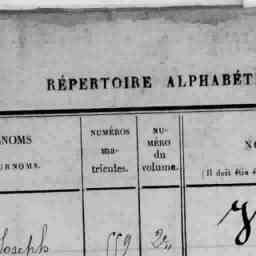 RÉPERTOIRE ALPHABÉT
NOMS
URNOMS.
NUMÉROS
ma-
tricules.
NU-
MÉRO
du
volume.
NO
(Il doit être é
Joseph
559
2